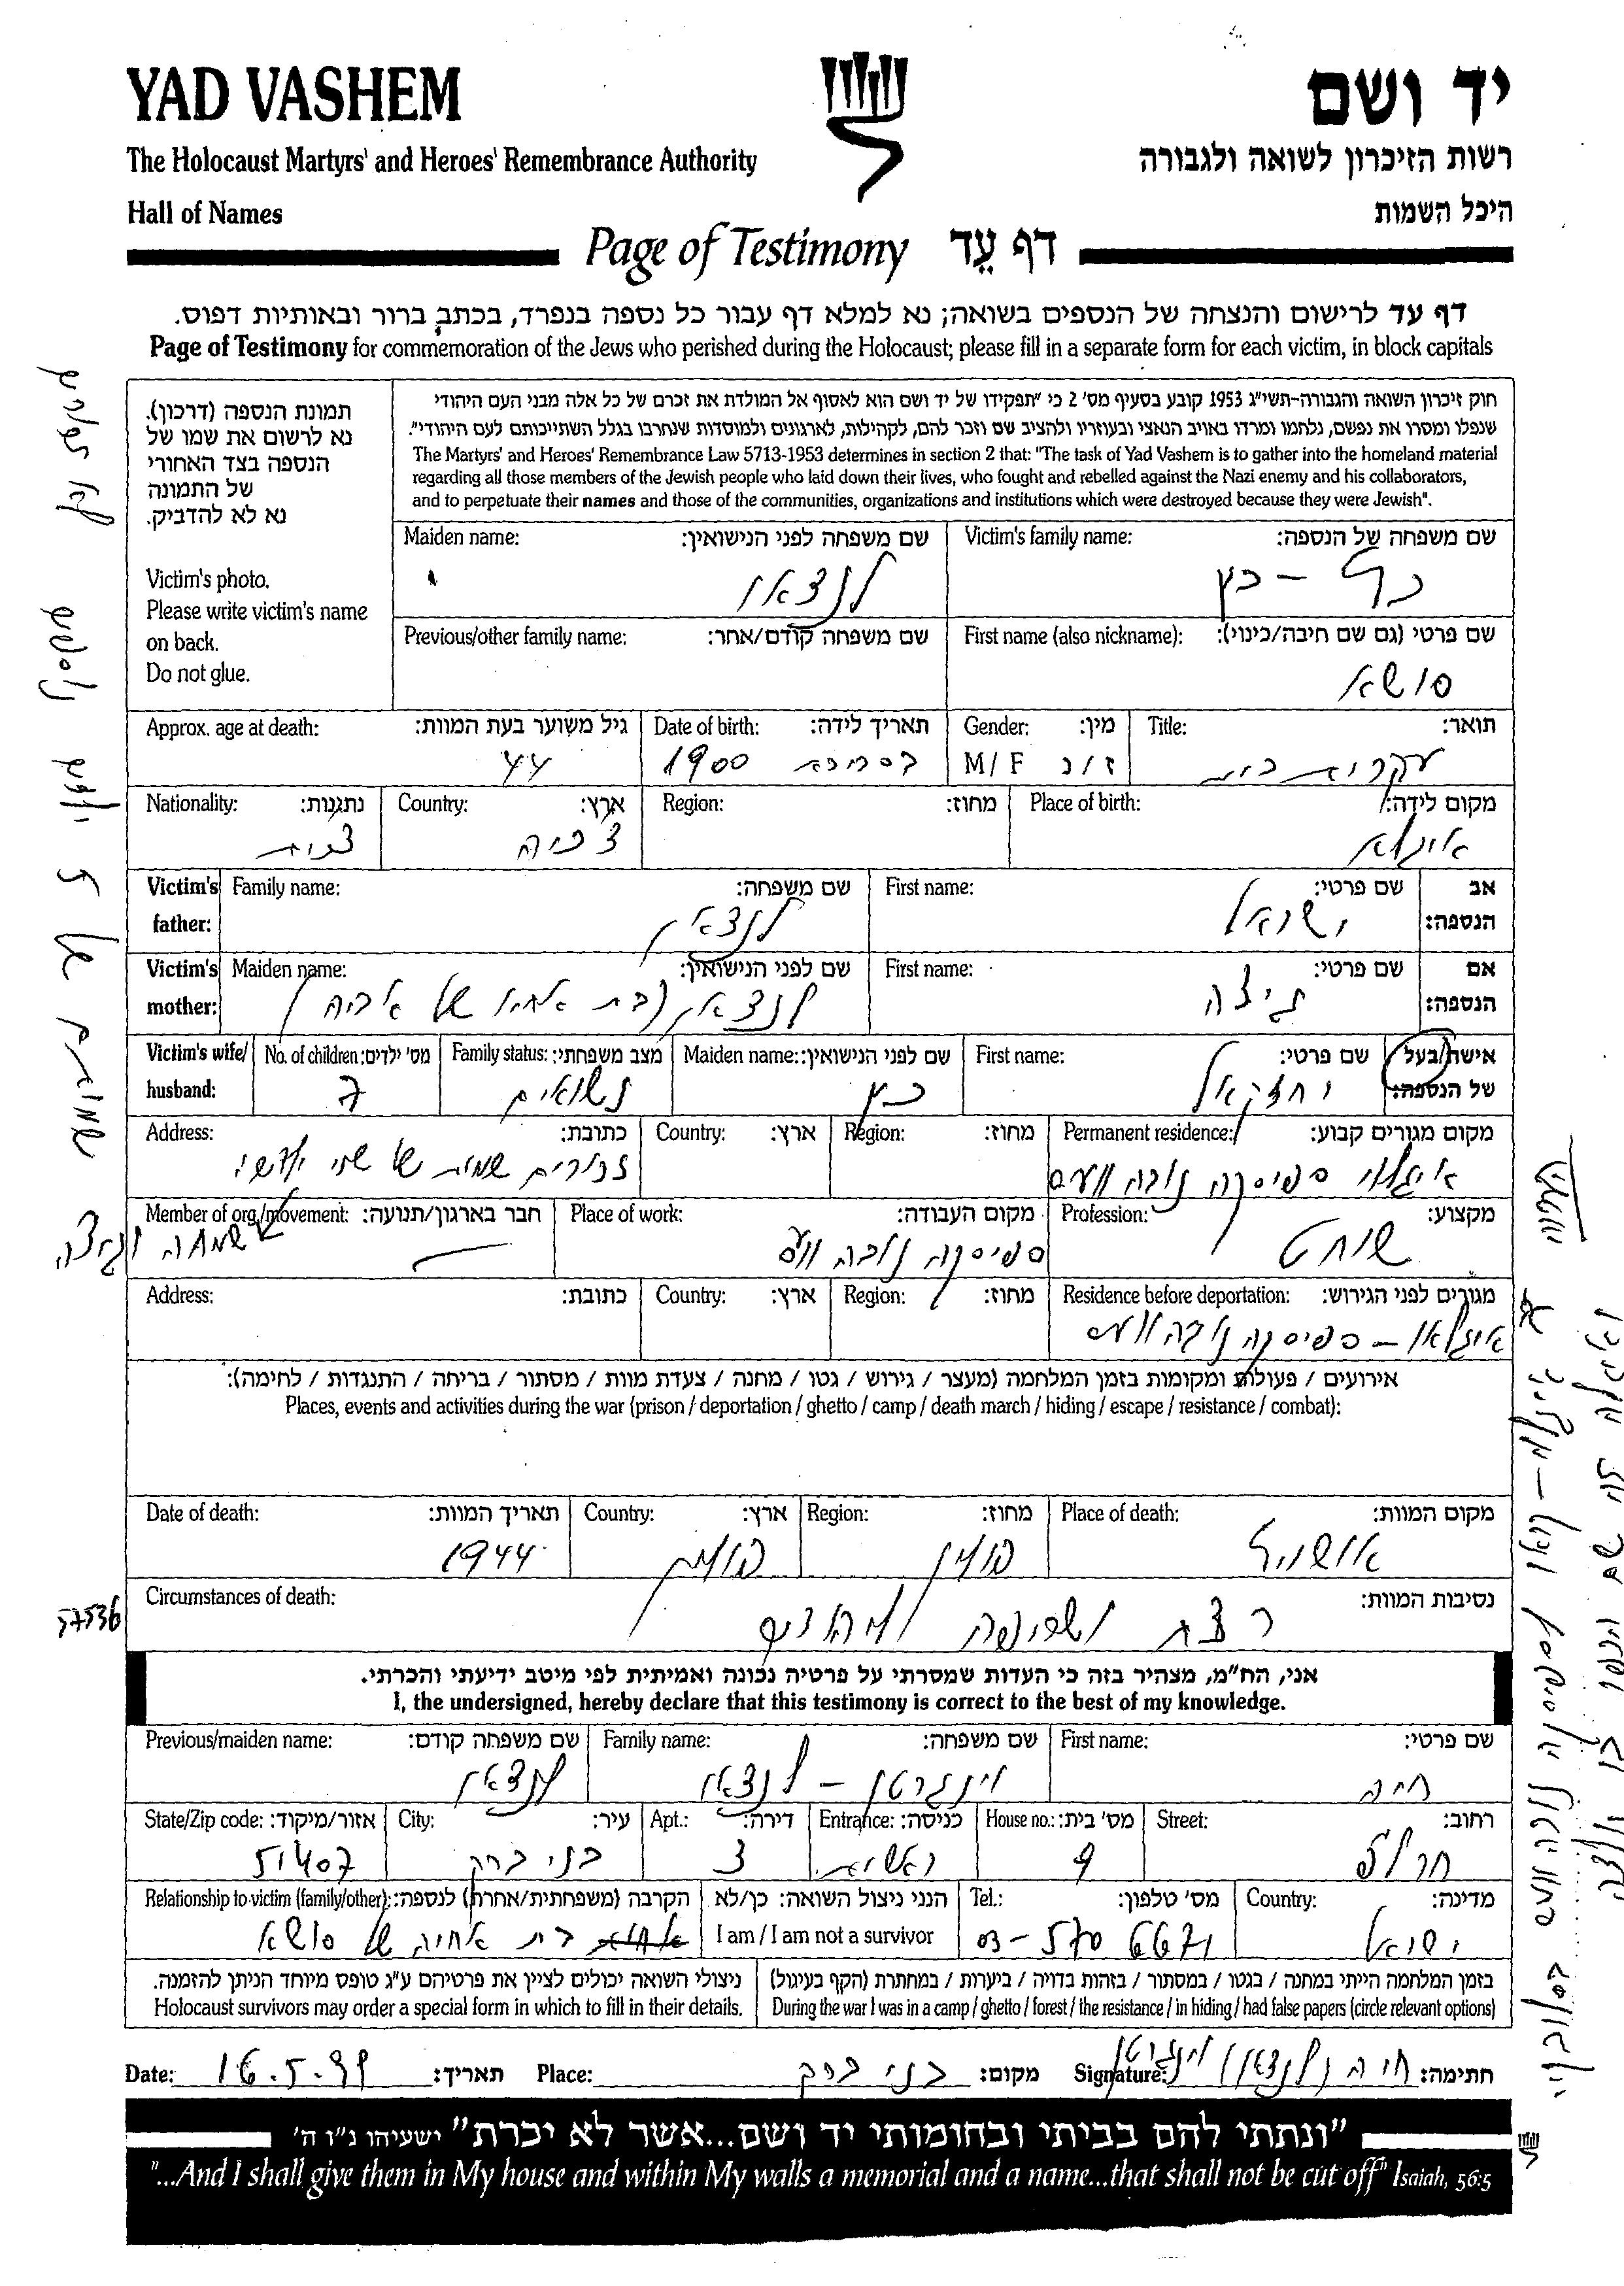 YAD VASHEM
יד ושם
The Holocaust Martyrs' and Heroes' Remembrance Authority
רשות הזיכרון לשואה ולגבורה
Hall of Names
היכל השמות
Page of Testimony דף עֵד
דף עד לרישום והנצחה של הנספים בשואה; נא למלא דף עבור כל נספה בנפרד, בכתב ברור ובאותיות דפוס.
Page of Testimony for commemoration of the Jews who perished during the Holocaust; please fill in a separate form for each victim, in block capitals
תמונת הנספה (דרכון).
נא לרשום את שמו של
הנספה בצד האחורי
של התמונה
נא לא להדביק.
Victim's photo.
Please write victim's name
on back.
Do not glue.
חוק זיכרון השואה והגבורה-תשי"ג 1953 קובע בסעיף מס' 2 כי "תפקידו של יד ושם הוא לאסוף אל המולדת את זכרם של כל אלה מבני העם היהודי
שנפלו ומסרו את נפשם, נלחמו ומרדו באויב הנאצי ובעוזריו ולהציב שם וזכר להם, לקהילות, לארגונים ולמוסדות שנחרבו בגלל השתייכותם לעם היהודי".
The Martyrs' and Heroes' Remembrance Law 5713-1953 determines in section 2 that: "The task of Yad Vashem is to gather into the homeland material
regarding all those members of the Jewish people who laid down their lives, who fought and rebelled against the Nazi enemy and his collaborators,
and to perpetuate their names and those of the communities, organizations and institutions which were destroyed because they were Jewish".
Victim's family name: שם משפחה של הנספה:
כץ
Maiden name: שם משפחה לפני הנישואין:
לנצאו
First name (also nickname): שם פרטי (גם שם חיבה/כינוי):
סושא
Previous/other family name: שם משפחה קודם/אחר:
Title: תואר:
עקרת בית
Gender: מין:
M/F ז/נ
Date of birth: תאריך לידה:
בסביבות 1900
Approx. age at death: גיל משוער בעת המוות:
44
Place of birth: מקום לידה:
איגלא
Region: מחוז:
Country: ארץ:
צ'כיה
Nationality: נתגנות:
צ'כית
Victim's father: אב הנספה:
First name: שם פרטי:
ישראל
Family name: שם משפחה:
לנצאו
Victim's mother: אם הנספה:
First name: שם פרטי:
גיצה
Maiden name: שם לפני הנישואין:
לנצאו (בת אחיו של אביה)
Victim's wife/husband: אישה/בעל של הנספה:
First name: שם פרטי:
יחזקאל
Maiden name: שם לפני הנישואין:
כץ
Family status: מצב משפחתי:
נשואים
No. of children: מס' ילדים:
7
Permanent residence: מקום מגורים קבוע:
ספיסקה נובה ווס
Region: מחוז:
Country: ארץ:
Address: כתובת:
זכורים שמות של שני ילדים
Profession: מקצוע:
שוחט
Place of work: מקום העבודה:
ספיסקה נובה ווס
Member of org./movement: חבר בארגון/תנועה:
שמחה וגיצה
Residence before deportation: מגורים לפני הגירוש:
איגלאו – ספיסקה נובה ווס
Region: מחוז:
Country: ארץ:
Address: כתובת:
אירועים / פעולות ומקומות בזמן המלחמה (מעצר / גירוש / גטו / מחנה / צעדת מוות / מסתור / בריחה / התנגדות / לחימה):
Places, events and activities during the war (prison / deportation / ghetto / camp / death march / hiding / escape / resistance / combat):
Place of death: מקום המוות:
אושויץ
Region: מחוז:
פולין
Country: ארץ:
פולין
Date of death: תאריך המוות:
1944
Circumstances of death: נסיבות המוות:
רצח ושריפה
57536
אני, הח"מ, מצהיר בזה כי העדות שמסרתי על פרטיה נכונה ואמיתית לפי מיטב ידיעתי והכרתי.
I, the undersigned, hereby declare that this testimony is correct to the best of my knowledge.
First name: שם פרטי:
חיה
Family name: שם משפחה:
וינגרטן – לנצאו
Previous/maiden name: שם משפחה קודם:
לנצאו
Street: רחוב:
חרל"פ
House no.: מס' בית:
9
Entrance: כניסה:
ראשית
Apt.: דירה:
3
City: עיר:
בני ברק
State/Zip code: אזור/מיקוד:
51407
Country: מדינה:
ישראל
Tel.: מס' טלפון:
03-570 6671
הנני ניצול השואה: כן/לא
I am / I am not a survivor
Relationship to victim (family/other): הקרבה (משפחתית/אחרת) לנספה:
בת אחיה של סושא
בזמן המלחמה הייתי במחנה / בגטו / במסתור / בזהות בדויה / ביערות / במחתרת (הקף בעיגול)
During the war I was in a camp / ghetto / forest / the resistance / in hiding / had false papers (circle relevant options)
ניצולי השואה יכולים לציין את פרטיהם ע"ג טופס מיוחד הניתן להזמנה.
Holocaust survivors may order a special form in which to fill in their details.
Date: 16.5.99 תאריך:
Place: בני ברק מקום:
Signature: חיה (לנצאו) וינגרטן חתימה:
"ונתתי להם בביתי ובחומותי יד ושם...אשר לא יכרת" ישעיהו נ"ו ה'
"...And I shall give them in My house and within My walls a memorial and a name...that shall not be cut off" Isaiah, 56:5